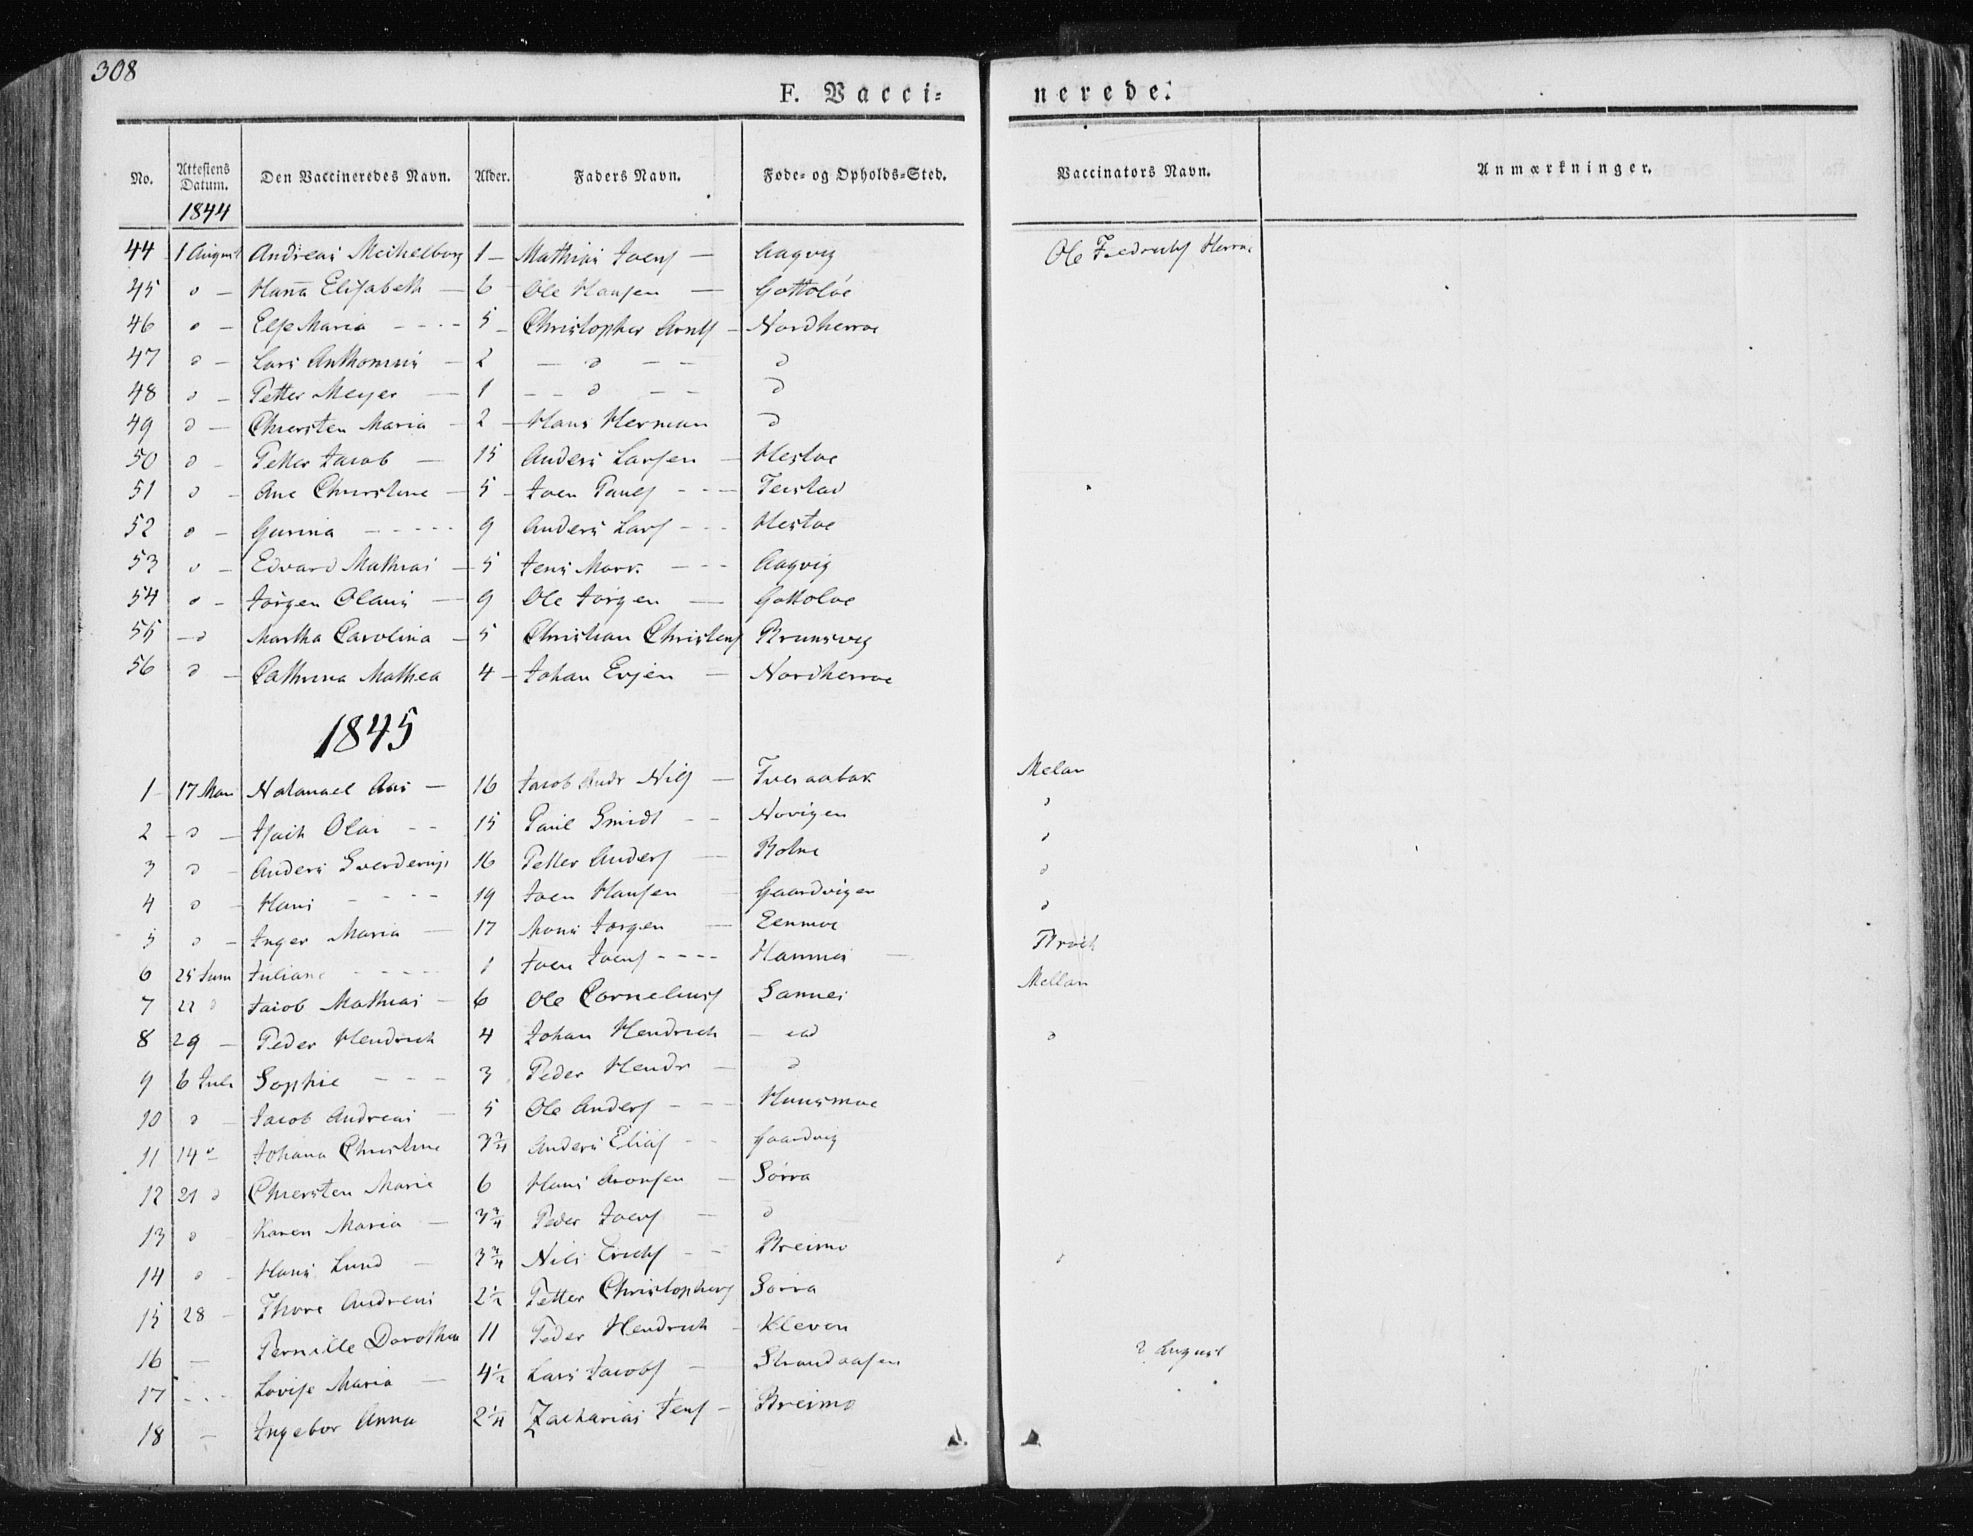 308
F. Vacci=
nerede.
No. Attestens Datum. Den Vaccineredes Navn. Alder. Faders Navn. Føde- og Opholds-Sted. Vaccinators Navn. Anmærkninger.
1844
44 1 August Andreas Meihelborg 1 – Mathias Joens – Aagvig Ole Fredrichs Herrøe
45 d – Hanna Elisabeth – 6 Ole Hansen – Gottoløe
46 d – Else Maria - - - - 5 – Christopher Arnts – Nordherroe
47 d – Lars Anthonius – 2 – d – – d
48 d – Petter Meyer – 1 – – d – – d
49 d – Chiersten Maria – 2 – Hans Herman d
50 d – Petter Jacob – 15 Anders Larsen – Hestøe
51 d – Ane Christine – 5 – Joen Pauls - - – Teistad
52 d – Gurina - - - - - 9 Anders Lars - - - Hestøe
53 d – Edvard Mathias – 5 Jens Mark - - - Aagvig
54 d – Jørgen Olaus – 9 Ole Jørgen – Gottoloe
55 – d Martha Carolina – 5 Christian Christens Brunsvig
56 d – Cathrina Mathea 4 – Johan Evjen – Nordherroe
1845
1 17 Mai Natanael Aas – 16 Jacob Andr Nils – Tveraabak Melan
2 – d – Isach Olai - - 15 Paul Smidt - - Novigen d
3 d – Anders Sverderup 16 Petter Anders – Botne d
4 d – Hans - - - - 19 Joen Hansen – Gaardvigen d
5 d – Inger Maria – 17 Mons Jørgen – Eenmoe d
6 25 Juni Juliane - - - - - 1 Joen Joens - - - - Hamnes – Broch
7 22 d Jacob Mathias – 6 Ole Cornelius Sannes Mellan
8 29 – Peder Hendrich 4 Johan Hendrich – d
9 6 Juli Sophie - - - 3 Peder Hendr – d
10 d – Jacob Andreas – 5 Ole Anders - - - Huusmoe
11 14 d – Johana Christine 3 3/4 Anders Elias - - Gaardvig
12 21 d Chiersten Marie 6 Hans Aronsen – Sørra
13 d – Karen Maria – 3 3/4 Peder Joens – d
14 d – Hans Lund – 3 3/4 Nils Erichs - - Breimo d
15 28 – Thore Andreas 2 1/2 Petter Christophers Sørra
16 – Pernille Dorothea 11 Peder Hendrich – Kleven
17 - - - Lovise Maria – 4 1/2 Lars Jacobs – Strandaasen 2 August
18 – Ingebor Anna 2 1/4 Zacharias Jens – Breimo